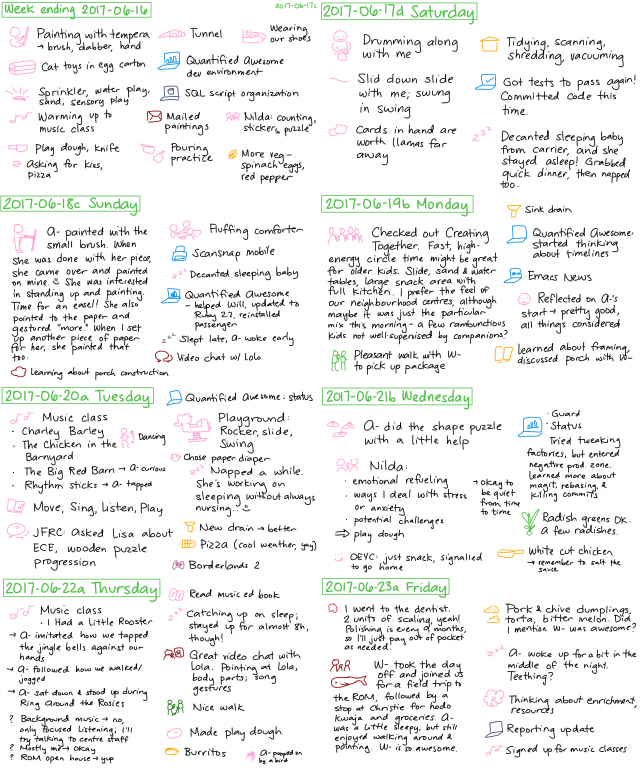 Week ending 2017-06-16
2017-06-17c
Painting with tempera
→ brush, dabber, hand
Tunnel
Wearing
our shoes
Cat toys in egg carton
Quantified Awesome
dev environment
Sprinkler, water play,
sand, sensory play
SQL script organization
Warming up to
music class
Mailed
paintings
Nilda: counting,
stickers, puzzle
Play dough, knife
Asking for kies,
pizza
Pouring
practice
More veg-
spinach eggs,
red pepper
2017-06-17d Saturday
Drumming along
with me
Slid down slide
with me; swung
in swing
Cards in hand are
worth llamas far
away
Tidying, scanning,
shredding, vacuuming
Got tests to pass again!
Committed code this
time.
zzz
Decanted sleeping baby
from carrier, and she
stayed asleep! Grabbed
quick dinner, then napped
too.
2017-06-18c Sunday
A- painted with the
small brush. When
She was done with her piece,
she came over and painted
on mine. She was interested
in standing up and painting.
Time for an easel! She also
pointed to the paper and
gestured "more." When I set
up another piece of paper
for her, she painted that
too.
Learning about porch construction
Fluffing comforter
Scansnap mobile
zzz Decanted sleeping baby
Quantified Awesome
- helped Will, updated to
Ruby 2.2, reinstalled
passenger
zzz Slept late, A- woke early
Video chat w/ Lola
2017-06-19b Monday
Checked out Creating
Together. Fast, high-
energy circle time might be great
for older kids. Slide, sand & water
tables, large snack area with
full kitchen. I prefer the feel of
our neighbourhood centres, although
maybe it was just the particular
mix this morning - a few rambunctious
kids not well-supervised by companions?
Pleasant walk with W-
to pick up package
Sink drain
Quantified Awesome:
started thinking
about timelines
Emacs News
Reflected on A-'s
start → pretty good,
all things considered
Learned about framing,
discussed porch with W-
2017-06-20a Tuesday
Music class
• Charley Barley
• The Chicken in the
Barnyard
Dancing
• The Big Red Barn → A- curious
• Rhythm sticks → A- tapped
Move, Sing, Listen, Play
JFRC: asked Lisa about
ECE, wooden puzzle
progression
Quantified Awesome: status
Playground:
Rocker, slide,
Swing
Chose paper diaper
zzz Napped a while.
She's working on
sleeping without always
nursing...
New drain → better
Pizza (cool weather, yay)
Borderlands 2
2017-06-21b Wednesday
A- did the shape puzzle
with a little help
Nilda:
• emotional refueling
• ways I deal with stress
or anxiety
• potential challenges
⇒ play dough
→ okay to
be quiet
from time
to time
OEYC: just snack, signalled
to go home
• Guard
• Status
Tried tweaking
factories, but entered
negative prod. zone.
Learned more about
magit, rebasing, &
killing commits
Radish greens OK.
A few radishes.
White cut chicken
→ remember to salt the
sauce
2017-06-22a Thursday
Music class
• I Had a Little Rooster
→ A- imitated how we tapped
the jingle bells against our
hands
→ A- followed how we walked/
jogged
→ A- sat down & stood up during
Ring Around the Rosies
? Background music → no,
only focused listening; I'll
try talking to centre staff
? Mostly me? → Okay
? ROM open house → yup
Read music ed book
zzz Catching up on sleep;
stayed up for almost 8h,
though!
Great video chat with
Lola. Pointing at Lola,
body parts; song
gestures
Nice walk
Made play dough
Burritos
A- pooped on
by a bird
2017-06-23a Friday
I went to the dentist.
2 units of scaling, yeah!
Polishing is every 9 months,
so I'll just pay out of pocket
as needed.
W- took the day
off and joined us
for a field trip to
the ROM, followed by a
stop at Christie for hodo
kwaja and groceries. A-
was a little sleepy, but still
enjoyed walking around &
pointing. W- is so awesome.
Pork & chive dumplings,
torta, bitter melon. Did
I mention W- was awesome?
zzz A- woke up for a bit in the
middle of the night.
Teething?
Thinking about enrichment,
resources
Reporting update
Signed up for music classes